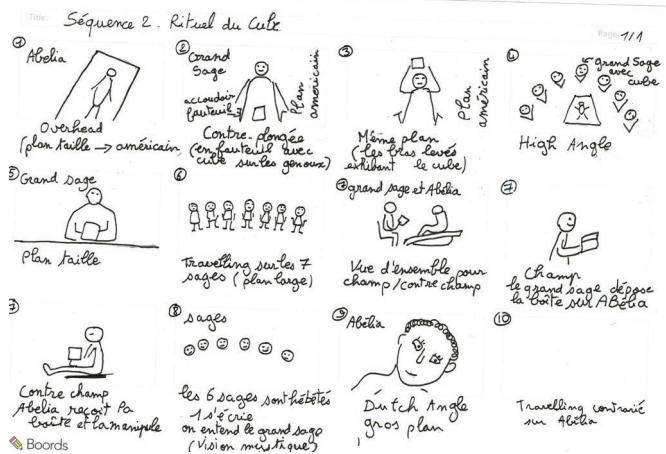 Title: Séquence 2. Rituel du Cube
Page: 1/1
① Abelia
Overhead
(plan taille → américain)
② Grand
Sage
accoudoir
fauteuil
Plan
américain
Contre-plongée
(en fauteuil avec
cube sur les genoux)
③
Plan
américain
Même plan
(les bras levés
exhibant le cube)
④
grand Sage
avec
cube
High Angle
⑤ Grand sage
Plan taille
⑥
Travelling sur les 7
sages (plan large)
⑦ grand sage et Abélia
Vue d'ensemble pour
champ/contre champ
⑦
Champ
le grand sage dépose
la boîte sur ABélia
⑦
Contre champ
Abelia reçoit la
boîte et la manipule
⑧ sages
les 6 sages sont hébétés
1 s'écrie
on entend le grand sage
(vision mystique)
⑨ Abélia
Dutch Angle
gros plan
⑩
Travelling contrarié
sur Abélia
Boords